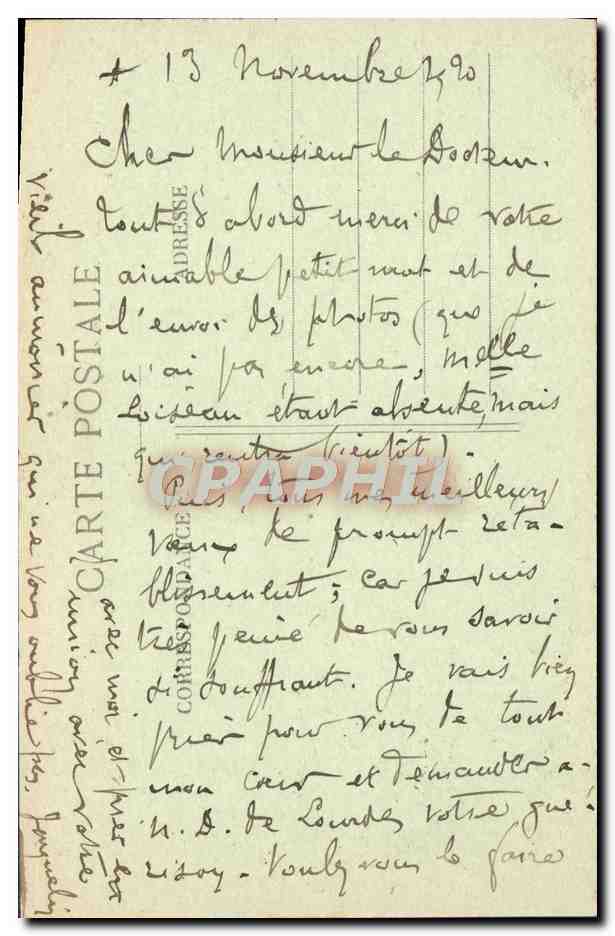 + 13 Novembre 1920
Cher Monsieur le Docteur.
Tout d'abord merci de votre
aimable petit mot et de
l'envoi des photos (que je
n'ai pas encore, Melle
Loiseau étant absente, mais
qui rentra bientôt).
Puis, tous mes meilleurs
vœux de prompt réta-
blissement; car je suis
très peiné de vous savoir
si souffrant. Je vais bien
prier pour vous de tout
mon cœur et demander à
N. D. de Lourdes votre gué-
rison. Voulez vous le faire
avec moi et prier en
union avec votre
vieil aumônier qui ne vous oublie pas.
CARTE POSTALE
CORRESPONDANCE
ADRESSE
CPAPHIL